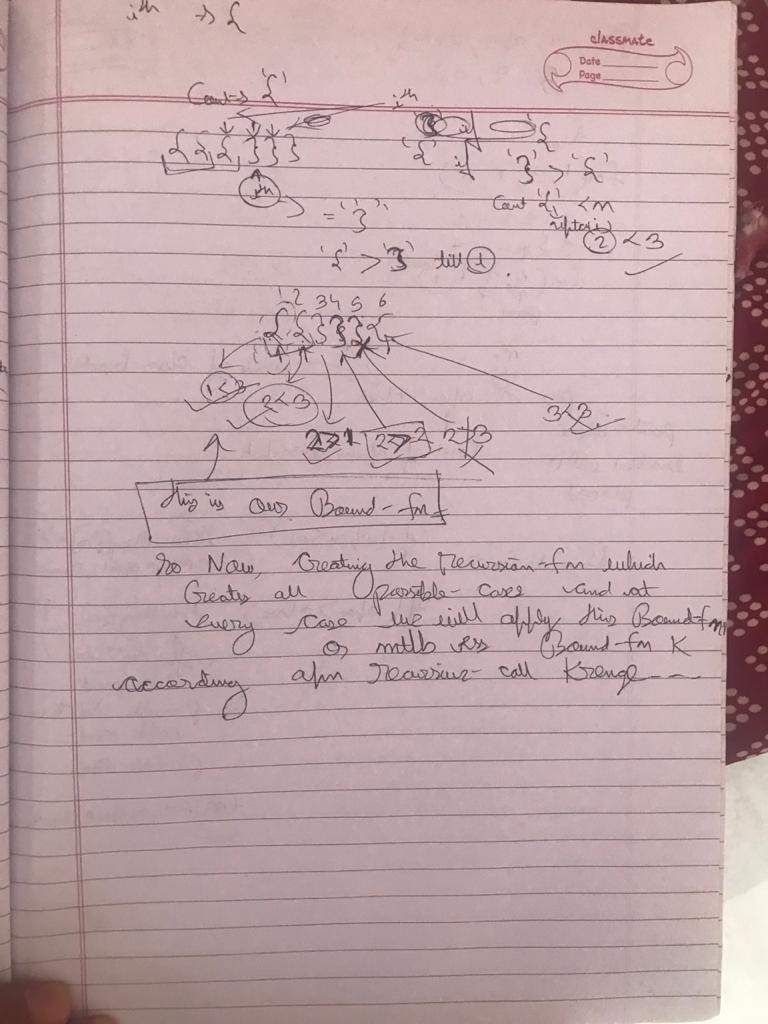 ith → {
classmate
Date
Page
Count → '{' ith
{ { { } } }
'{' if '}' > '{'
ith = '}'
Count '{' < n
2 < 3
'{' > '}' till i.
1 2 3 4 5 6
{ { } } } {
1<3
2<3
2>1
3<3
This is our Bound-fn
So Now, Creating the recursion-fn which
Creates all possible-cases and at
every case we will apply this Bound-fn
or mtlb uss Bound-fn K
according apn recursive-call krenge